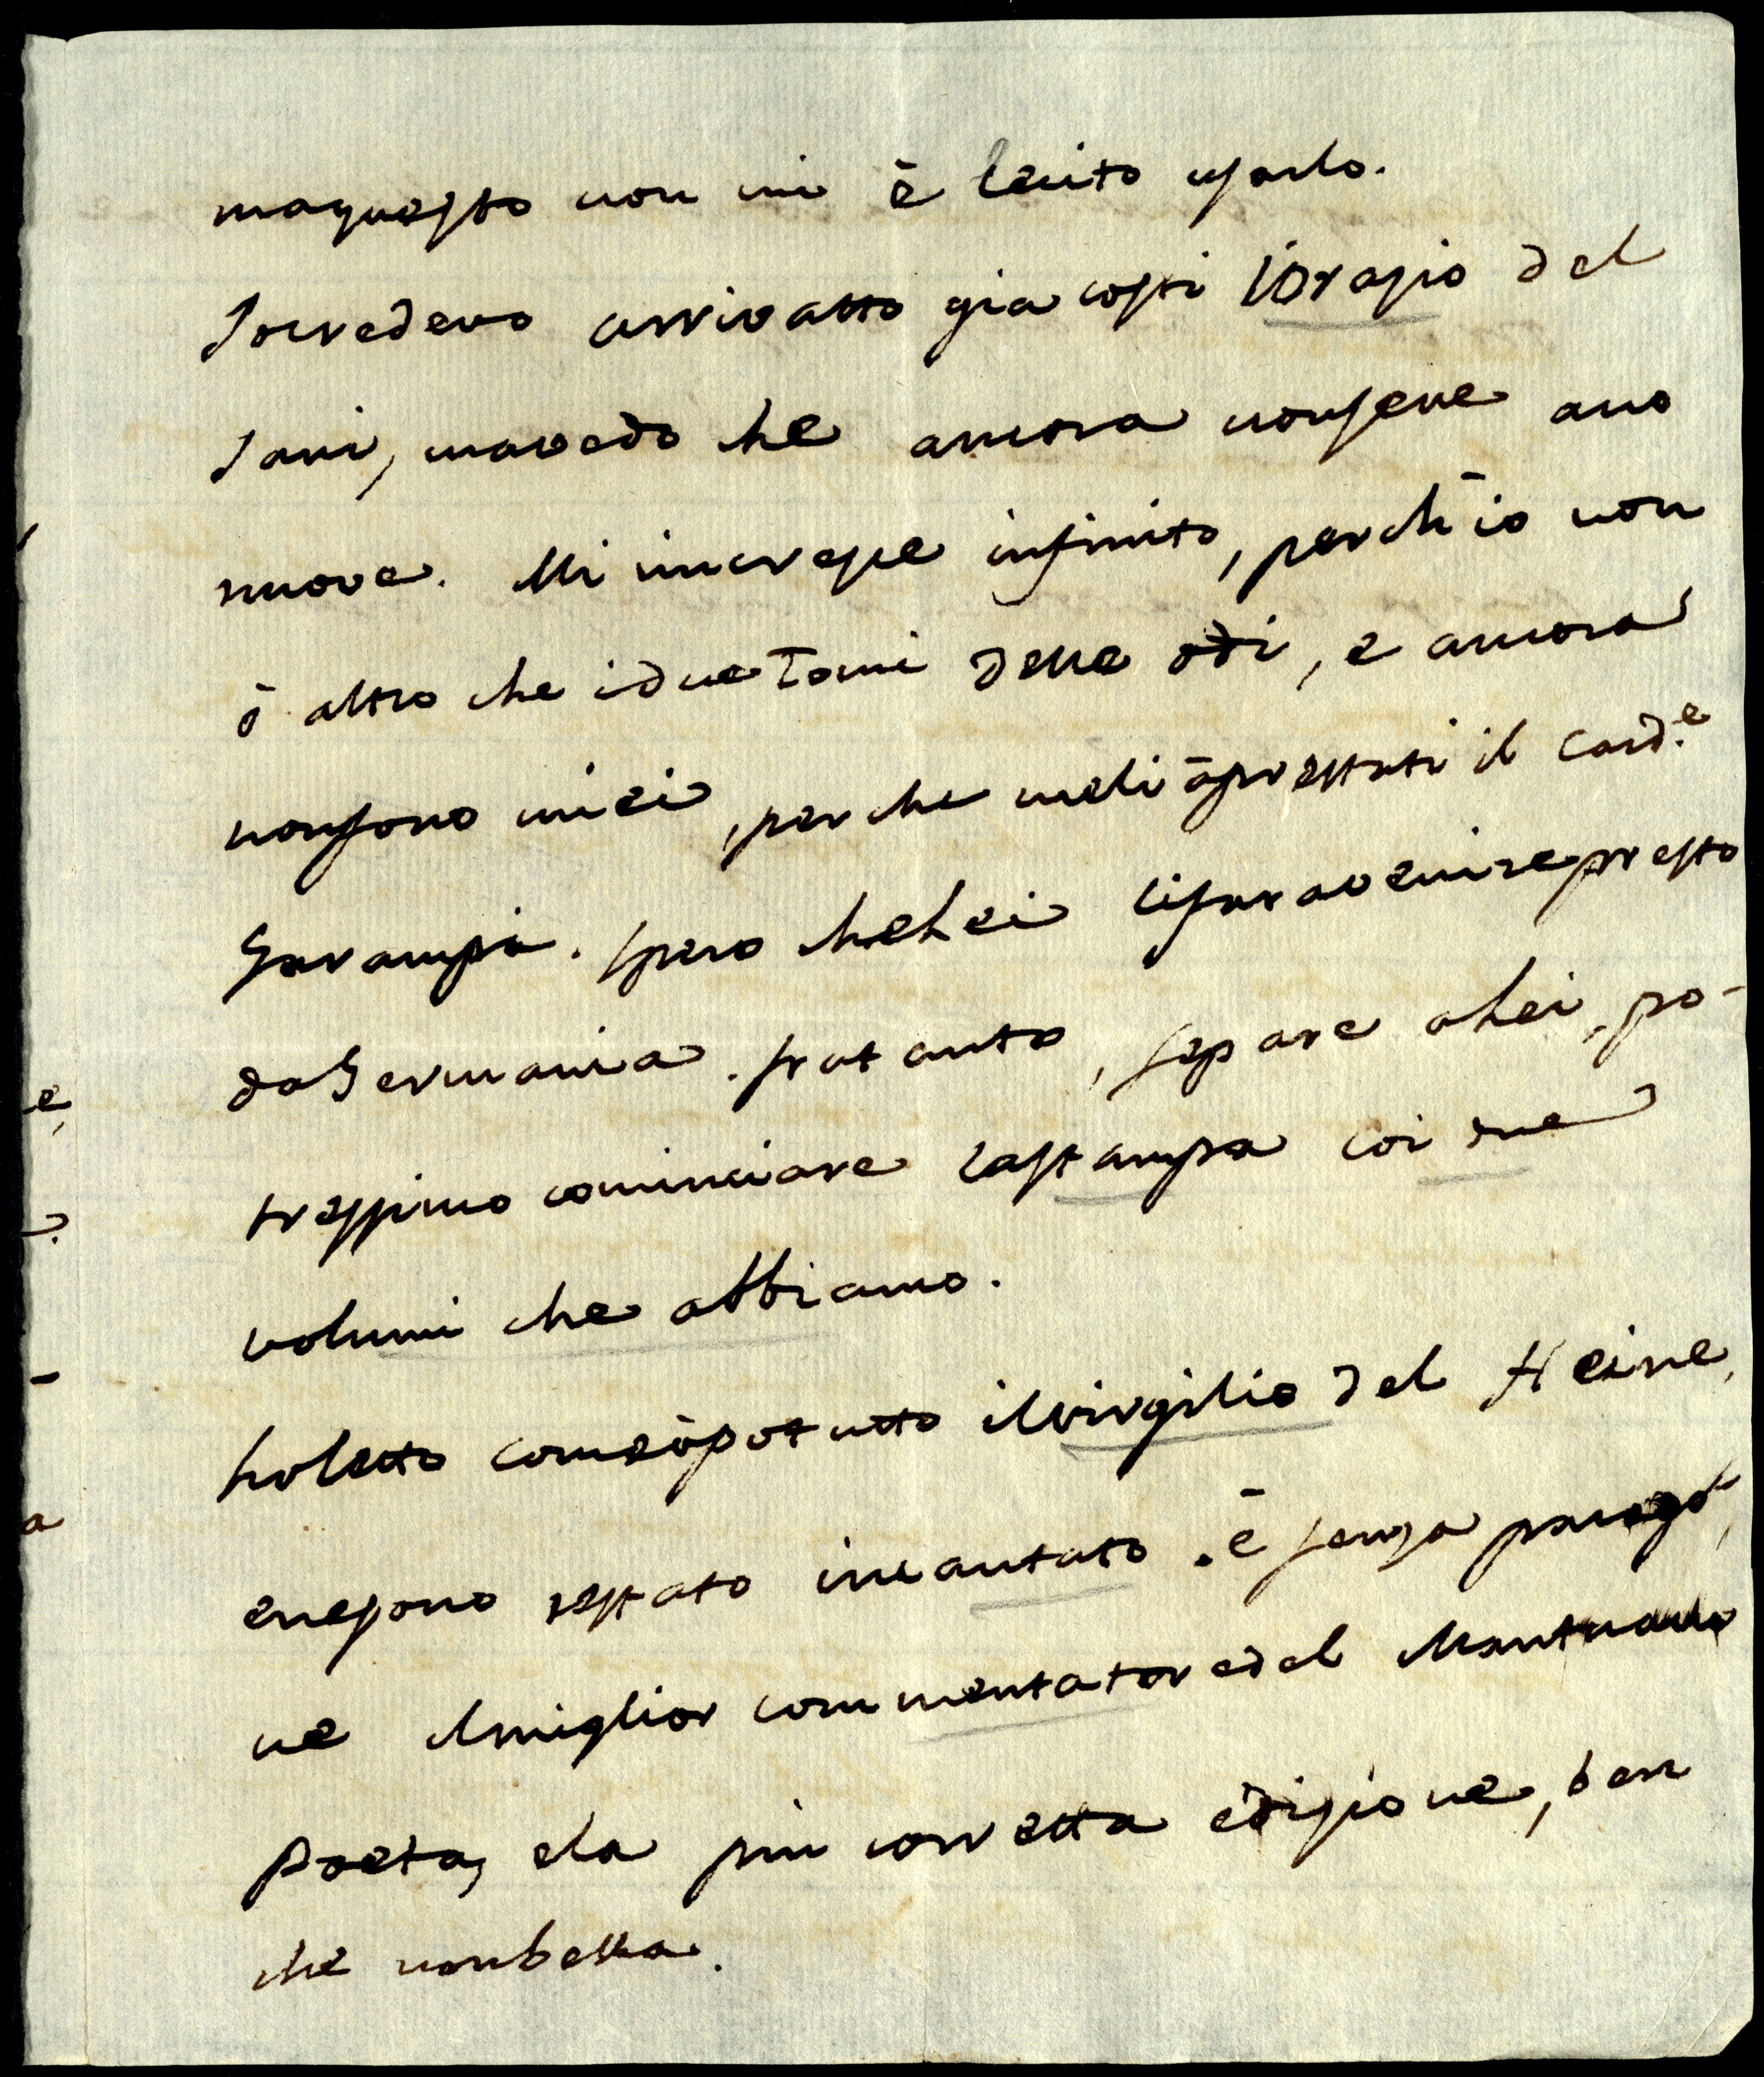 ma questo non mi è lecito usarlo.
Io credevo arrivatto gia costi l'Orazio del
Jani, ma vedo che ancora non se ne ano
nuove. Mi increse infinito, perch'io non
ō altro che i due Tomi delle odi, e ancora
non sono miei, perche me li ā prestati il Card.e
Garampi. spero che Lei li fara venire presto
da Germania. fratanto, se pare a Lei, po-
tressimo cominciare la stampa coi due
volumi che abbiamo.
Ho letto come ō potutto il virgilio del Heine,
e ne sono restato incantato. ē senza parago-
ne il miglior commentatore del Mantuano
Poeta, e la più corretta edizione, ben
che non bella.
e,
a